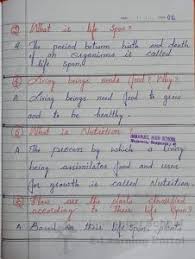 Q What is life Span?
A The period between birth and death
of an organisms is called
life span.
Q Living beings needs food? Why?
A Living beings need food to grow
and to be healthy.
Q What is Nutrition
A The process by which is living
being assimilates food and uses
for growth is called Nutrition.
Q How are the plants classified
according to their life span?
A Based on their life span, plant